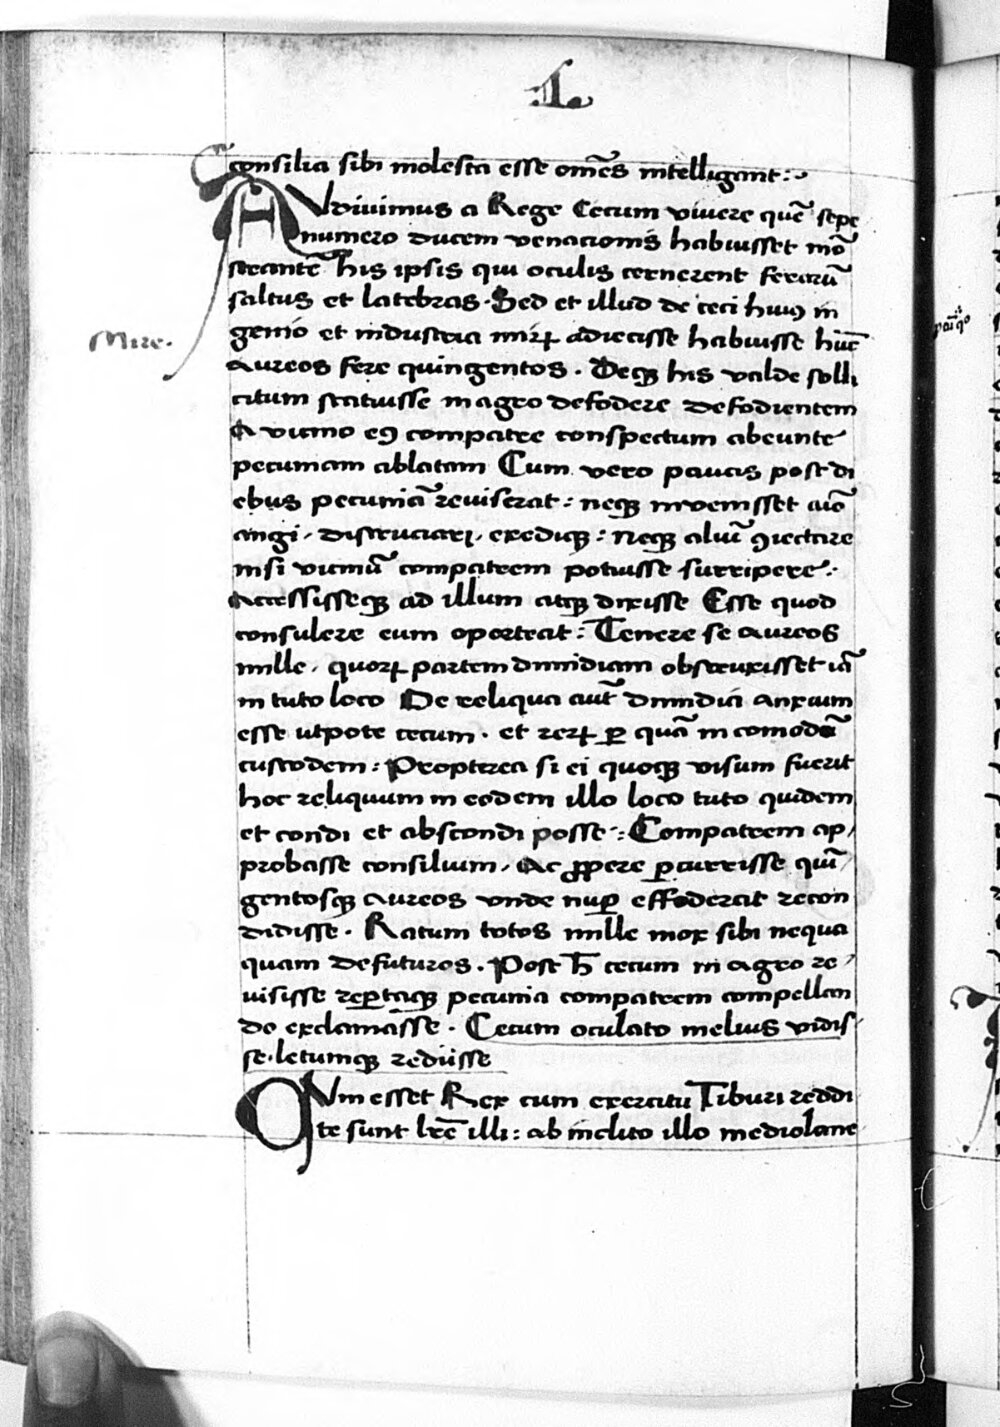 .I.
consilia sibi molesta esse om̄es intelligant:~
AVdiuimus a Rege Cecum viuere quē sepe
numero ducem venacionis habuisset mō
strantē his ipsis qui oculis cernerent ferarū
saltus et latebras. Sed et illud de ceci huiꝰ in
genio et industria mirꝝ adiecisse habuisse hūc
Mire.
Aureos fere quingentos. Deqꝫ his valde solli
citum statuisse in agro defodere defodientem
A vicino eiꝰ compatre conspectum abeunte
pecuniam ablatam Cum vero paucis post di
ebus pecuniā reuiserat: neqꝫ inuenisset aīo
angi, discruciari, exediqꝫ: Neqꝫ aliūı ꝯiectare
nisi vicinū compatrem potuisse surripere:
Accessisseqꝫ ad illum atqꝫ dixisse Esse quod
consulere eum oporteat: Tenere se aureos
mille, quorꝝ partem dimidiam obstruxisset iā
in tuto loco De reliqua aut̄ dimidia anxium
esse utpote cecum. et rerꝝ ꝑ quā incomodū
custodem: Propterea si ei quoqꝫ visum fuerit
hoc reliquum in eodem illo loco tuto quidem
et condi et abscondi posse: Compatrem ap
probasse consilium, Ac ꝓpere ꝑcurrisse quī
gentosqꝫ Aureos vnde nuꝑ effoderat recon
didisse. Ratum totos mille mox sibi nequa
quam defuturos. Post h̄ cecum in agro re
uisisse reꝑtaqꝫ pecunia compatrem compellan
do exclamasse. Cecum oculato melius vidis
se. letumqꝫ redijsse
QVm esset Rex cum exercitu Tiburi reddi
te sunt lr̄e illi: ab inclito illo mediolane